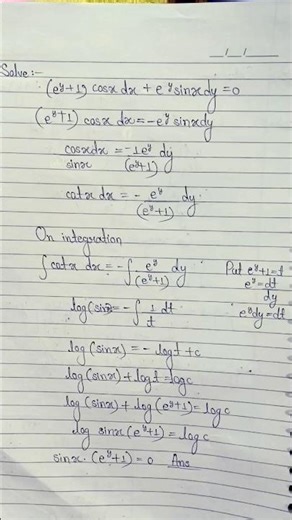 _/_/_
Solve:-
(e^y+1) cosx dx + e^y sinx dy = 0
(e^y+1) cosx dx = -e^y sinx dy
cosx dx/sinx = -1e^y/(e^y+1) dy
cotx dx = - e^y/(e^y+1) dy
On integration
∫cotx dx = -∫ e^y/(e^y+1) dy Put e^y+1=t
e^y = dt/dy
log(sinx) = -∫ 1/t dt e^y dy = dt
log(sinx) = - logt + c
log(sinx) + logt = logc
log(sinx) + log(e^y+1) = logc
log sinx(e^y+1) = logc
sinx. (e^y+1) = 0 Ans